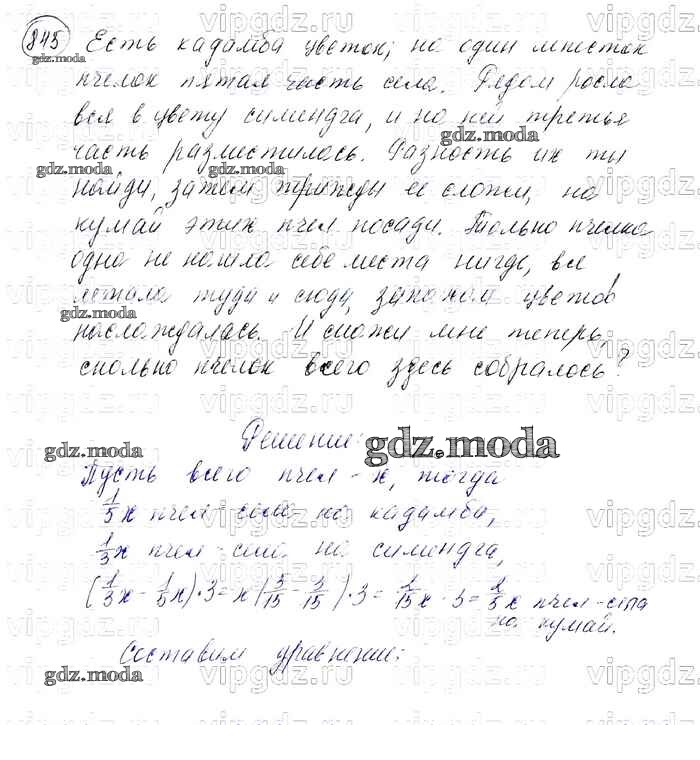 845 Есть кадамба цветок; на один лепесток
пчелок пятая часть села. Рядом росла
вся в цвету сименгда, и на ней третья
часть разместилась. Разность их ты
найди, затем трижды ее сложи, на
кутай этих пчел посади. Только пчелка
одна не нашла себе места нигде, все
летала туда и сюда, запахом цветов
наслаждалась. И скажи мне теперь,
сколько пчелок всего здесь собралось?
Решение:
Пусть всего пчел - x, тогда
1/5 x пчел - село на кадамба,
1/3 x пчел - село на сименгда,
(1/3 x - 1/5 x) · 3 = x (5/15 - 3/15) · 3 = 2/15 x · 3 = 2/5 x пчел - села
на кутай.
Составим уравнение:
gdz.moda
vipgdz.ru